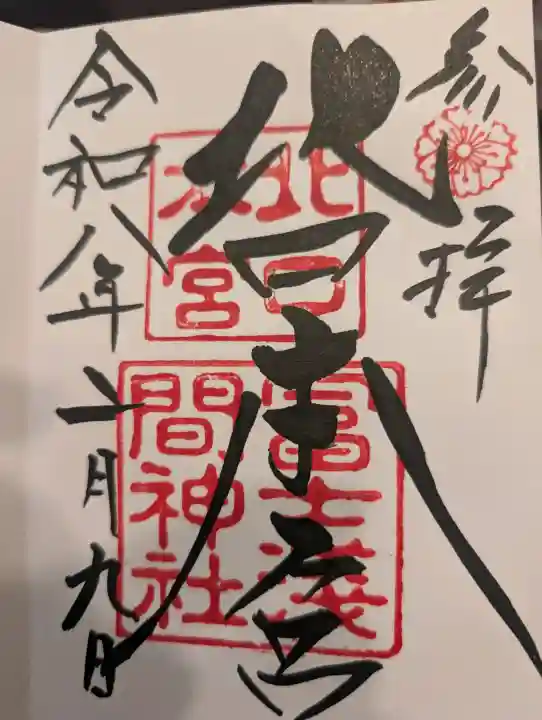 参拝
北口本宮
北口
本宮
冨士浅
間神社
令和八年二月九日